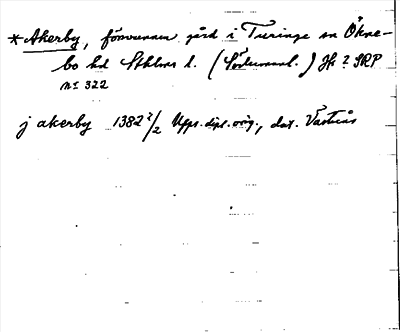 * Akerby, försvunnen gård i Turinge sn Ökne-
bo hd Sthlms l. (Södermanl.) Hs ? SRP
nr 322
j akerby 1382 2/2 Upps. dipl. orig., dat. Västerås